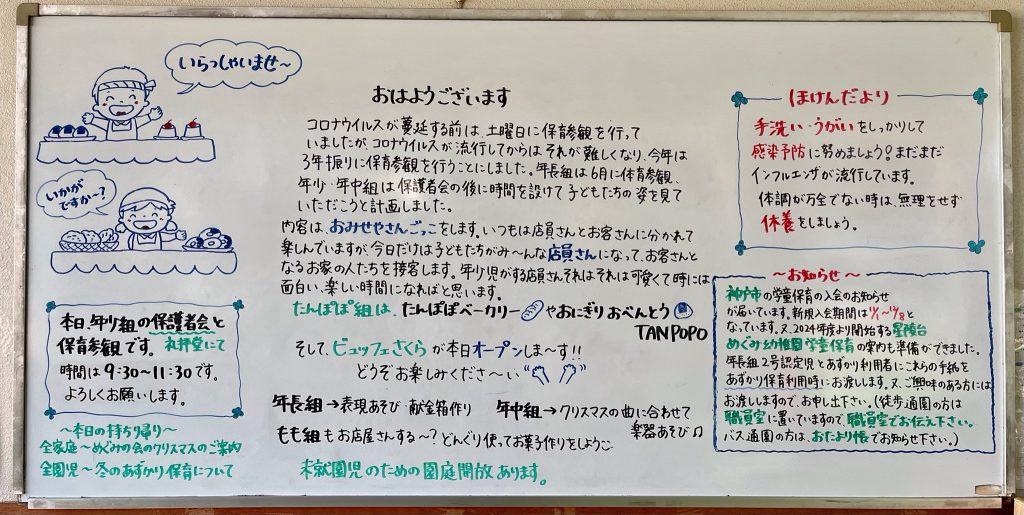 いらっしゃいませ～
いかが
ですか～?
おはようございます
コロナウイルスが蔓延する前は、土曜日に保育参観を行って
いましたが、コロナウイルスが流行してからは それが難しくなり、今年は
3年振りに保育参観を行うことにしました。年長組は6月に体育参観、
年少・年中組は保護者会の後に時間を設けて子どもたちの姿を見て
いただこうと計画しました。
内容は、おみせやさんごっこをします。いつもは店員さんとお客さんに分かれて
楽しんでいますが、今日だけは子どもたちがみ～んな店員さんになって、お客さんと
なるお家の人たちを接客します。年少児がする店員さんそれはそれは可愛くて時には
面白い、楽しい時間になればと思います。
たんぽぽ組は、たんぽぽベーカリーやおにぎりおべんとう
TANPOPO
そして、ビュッフェさくらが本日オープンしま～す!!
どうぞお楽しみくださ～い
年長組→表現あそび・献金箱作り
年中組→クリスマスの曲に合わせて
楽器あそび♫
もも組もお店屋さんする～?どんぐり使ってお菓子作りをしようこ
未就園児のための園庭開放あります。
本日、年少組の保護者会と
保育参観です。礼拝堂にて
時間は9:30～11:30です。
よろしくお願いします。
～本日の持ち帰り～
全家庭～めぐみの会のクリスマスのご案内
全園児～冬のあずかり保育について
ほけんだより
手洗い・うがいをしっかりして
感染予防に努めましょう!まだまだ
インフルエンザが流行しています。
体調が万全でない時は、無理をせず
休養をしましょう。
～お知らせ～
神戸市の学童保育の入会のお知らせ
が届いています。新規入会期間は
なっています。又、2024年度より開始する星陵台
めぐみ幼稚園学童保育の案内も準備ができました。
年長組2号認定児とあずかり利用者にこれらの手紙を
あずかり保育利用時にお渡しします。又、ご興味のある方には
お渡ししますので、お申し出下さい。(徒歩通園の方は
職員室に置いていますので、職員室でお伝え下さい。
バス通園の方は、おたより帳でお知らせ下さい。)